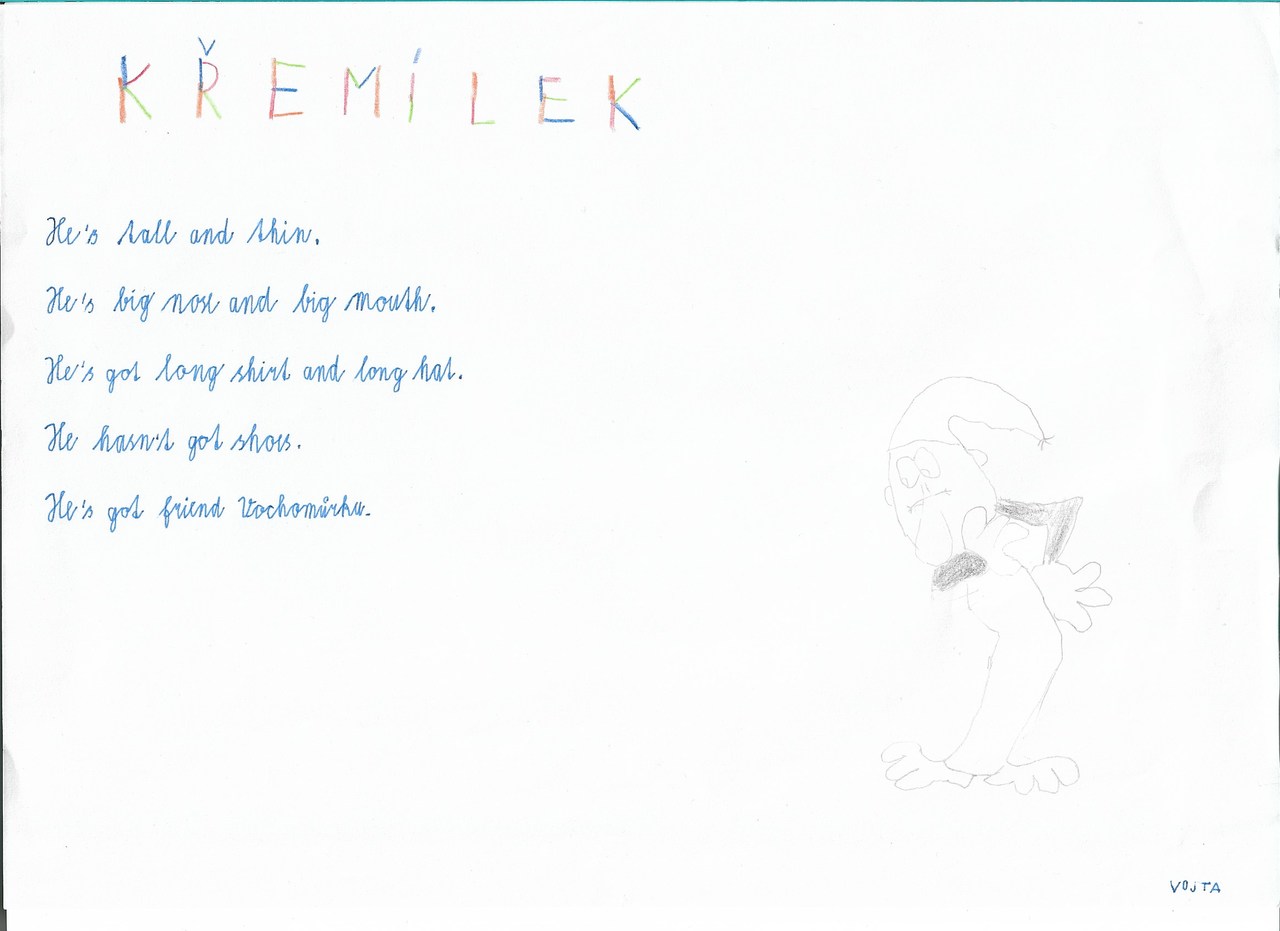 KŘEMÍLEK
He's tall and thin.
He's big nose and big mouth.
He's got long shirt and long hat.
He hasn't got shoes.
He's got friend Vochomůrku.
VOJTA